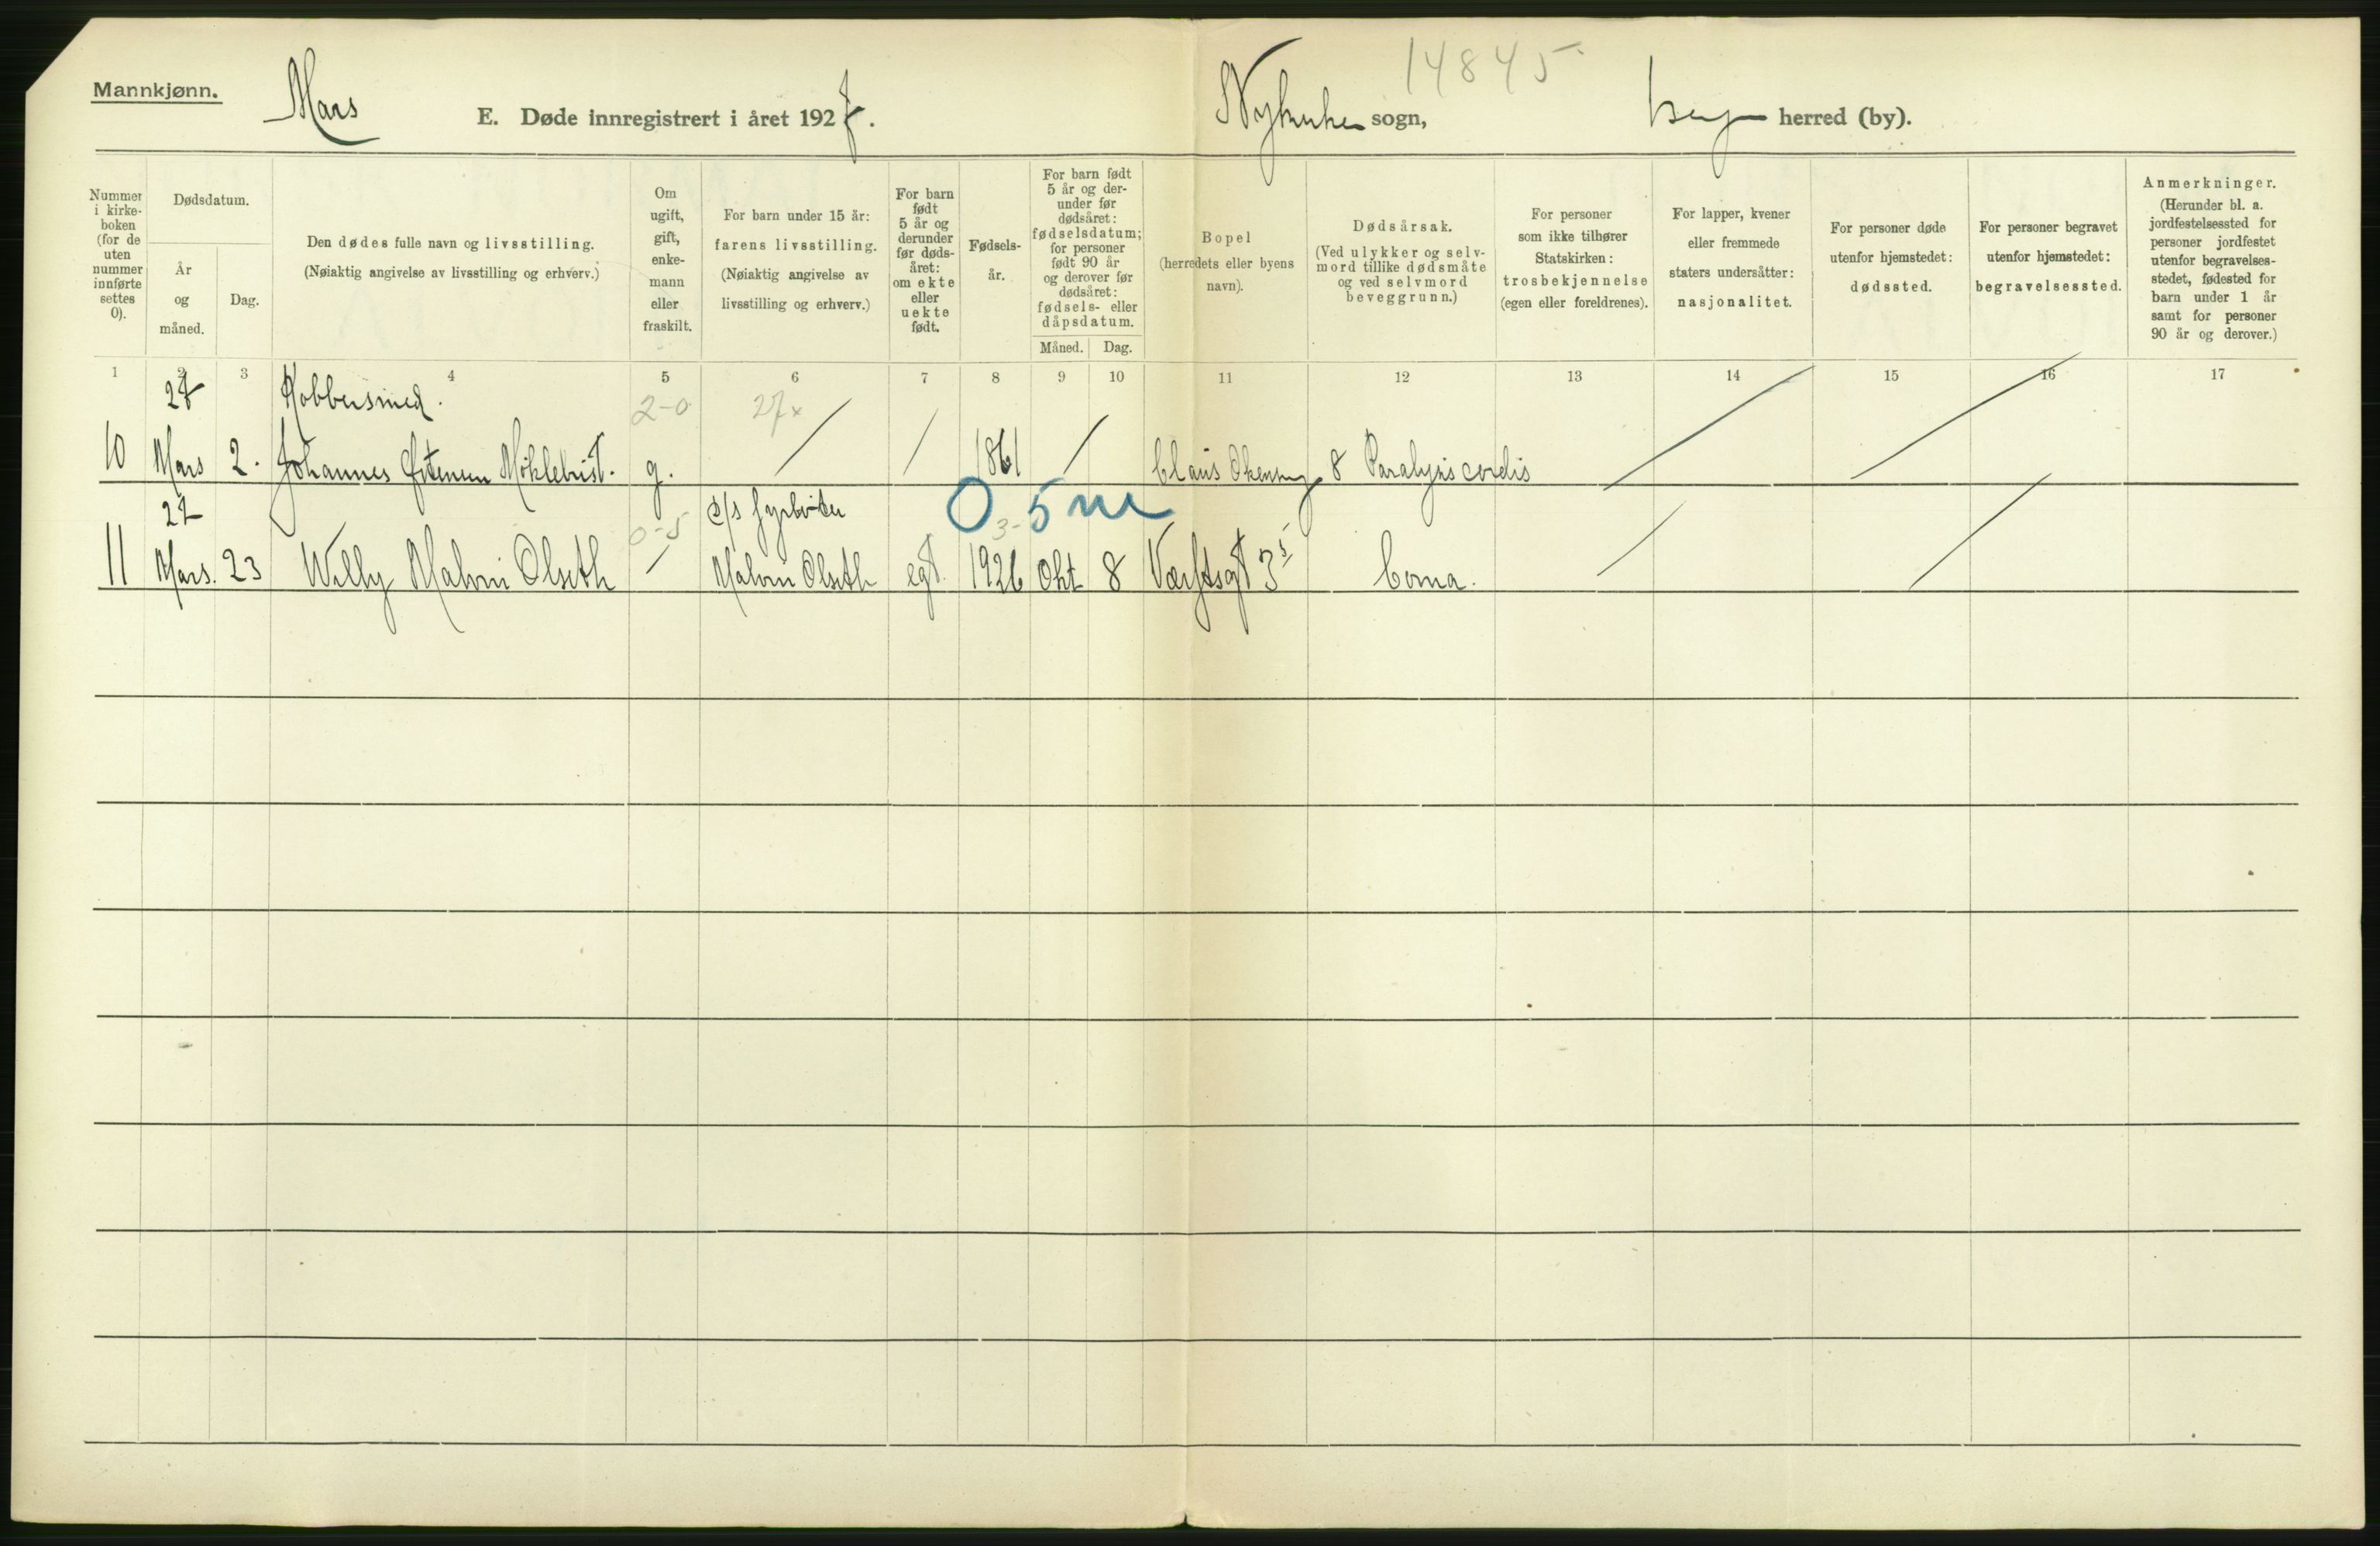 Mannkjønn.
Mars
E. Døde innregistrert i året 1927.
14845
Nykirken sogn,
herred (by).
Nummer i kirke-boken (for de uten nummer innførte settes 0).
Dødsdatum.
År og måned.
Dag.
Den dødes fulle navn og livsstilling.
(Nøiaktig angivelse av livsstilling og erhverv.)
Om ugift, gift, enke-mann eller fraskilt.
For barn under 15 år:
farens livsstilling.
(Nøiaktig angivelse av livsstilling og erhverv.)
For barn født 5 år og derunder før døds-året: om ekte eller uekte født.
Fødsels-år.
For barn født 5 år og der-under før dødsåret: fødselsdatum; for personer født 90 år og derover før dødsåret: fødsels- eller dåpsdatum.
Måned. Dag.
Bopel
(herredets eller byens navn).
Dødsårsak.
(Ved ulykker og selv-mord tillike dødsmåte og ved selvmord beveggrunn.)
For personer som ikke tilhører Statskirken: trosbekjennelse (egen eller foreldrenes).
For lapper, kvener eller fremmede staters undersåtter: nasjonalitet.
For personer døde utenfor hjemstedet: dødssted.
For personer begravet utenfor hjemstedet: begravelsessted.
Anmerkninger.
(Herunder bl. a. jordfestelsessted for personer jordfestet utenfor begravelses-stedet, fødested for barn under 1 år samt for personer 90 år og derover.)
1 2 3 4 5 6 7 8 9 10 11 12 13 14 15 16 17
27 Kobbersmed. 2-0 27x
10 Mars 2. Johannes Møklebust. g. / / 1861 / 8 Paralysis cordis / /
27 0-5 d/s fyrbøter 0 3- 5 m
11 Mars. 23 Willy Malvin Olseth / Malvin Olseth egt. 1926 Okt 8 Værftsgt 35 Coma. / /